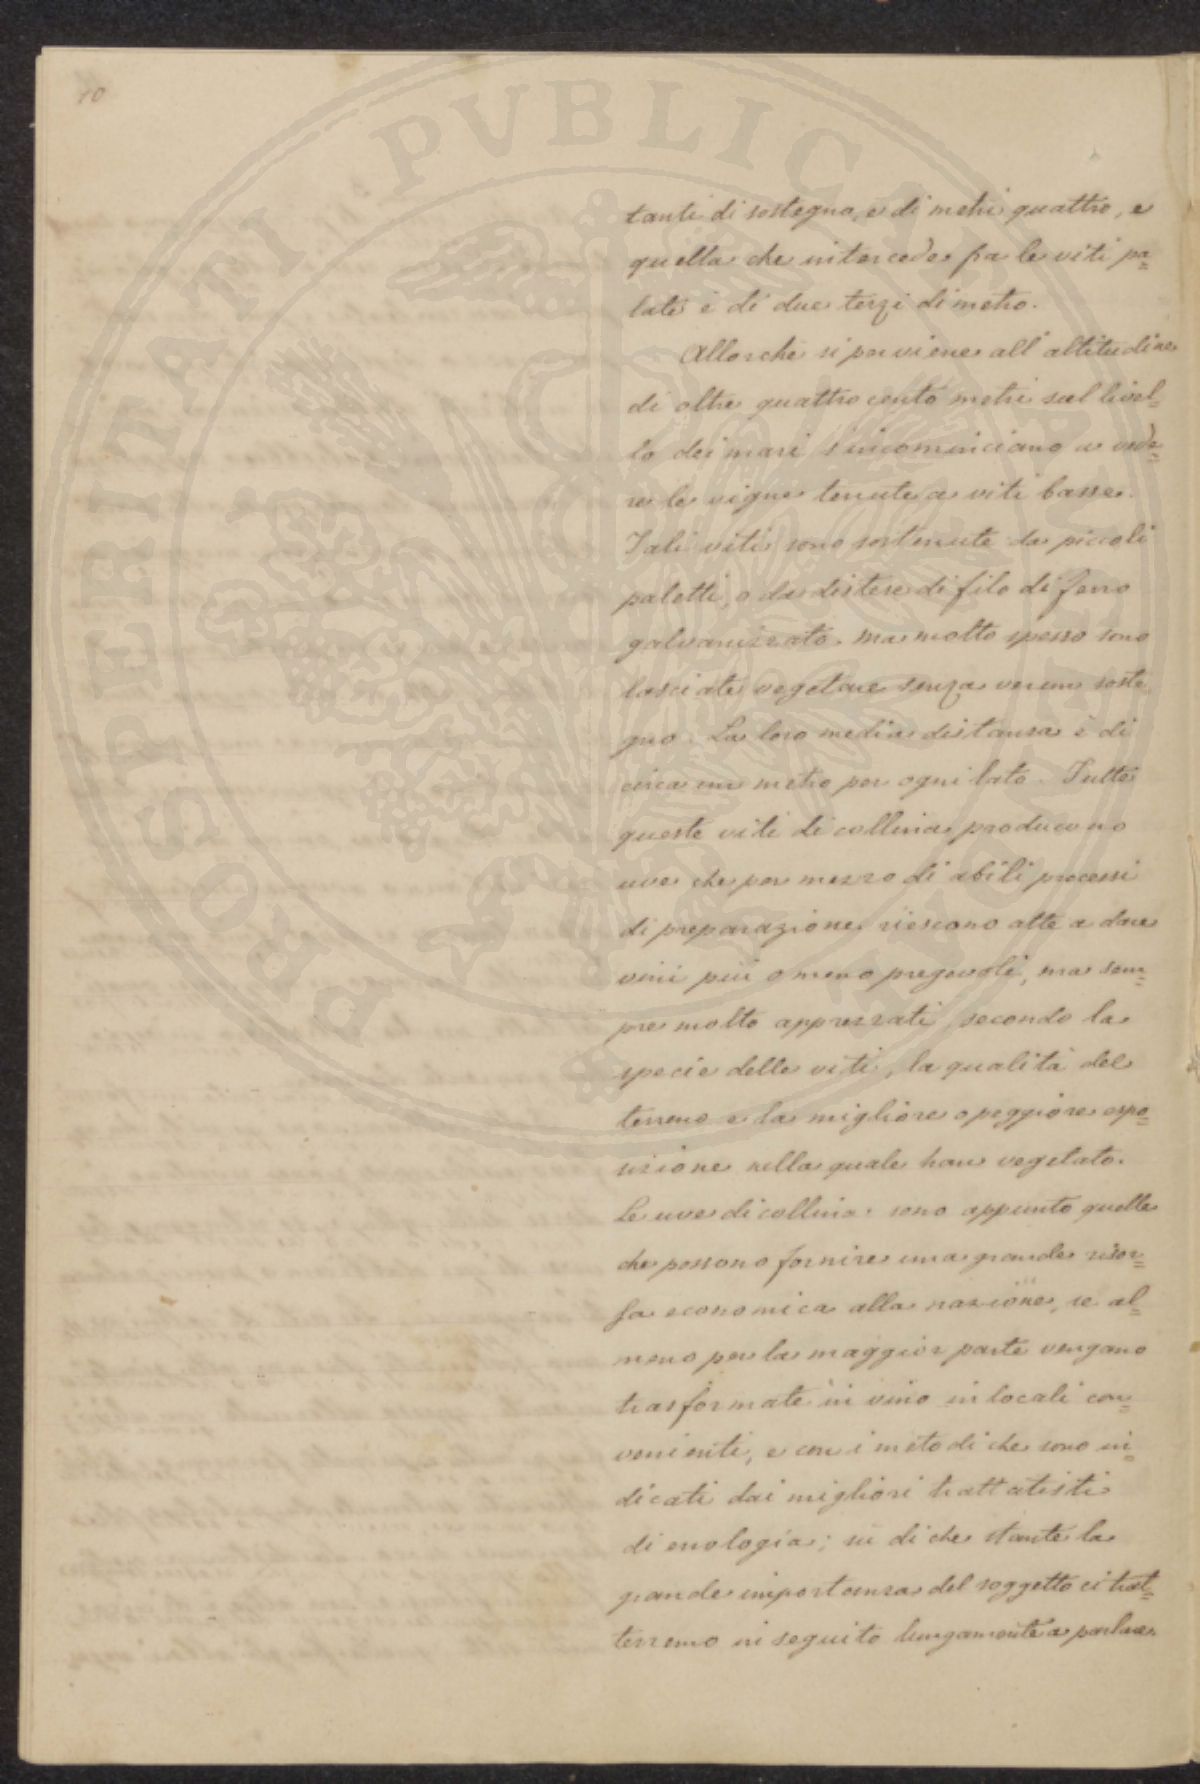 10
PROSPERITATI PUBLICAE
tanti di sostegno, è di metri quattro, e
quella che intercede fra le viti pa=
late è di due terzi di metro.
Allorchè si perviene all'altitudine
di oltre quattrocento metri sul livel=
lo dei mari s'incominciano a vede=
re le vigne tenute a viti basse.
Tali viti sono sostenute da piccoli
paletti, o da distese di filo di ferro
galvanizzato. ma molto spesso sono
lasciate vegetare senza verun soste
gno. La loro media distanza è di
circa un metro per ogni lato. Tutte
queste viti di collina producono
uve che per mezzo di abili processi
di preparazione, riescono atte a dare
vini più o meno pregevoli, ma sem=
pre molto apprezzati, secondo la
specie delle viti, la qualità del
terreno e la migliore o peggiore espo=
sizione nella quale han vegetato.
Le uve di collina, sono appunto quelle
che possono fornire una grande risor=
sa economica alla nazione, se al=
meno per la maggior parte vengano
trasformate in vino in locali con=
venienti, e con i metodi che sono in=
dicati dai migliori trattatisti
di enologia; su di che stante la
grande importanza del soggetto ci trat=
terremo in seguito lungamente a parlare.